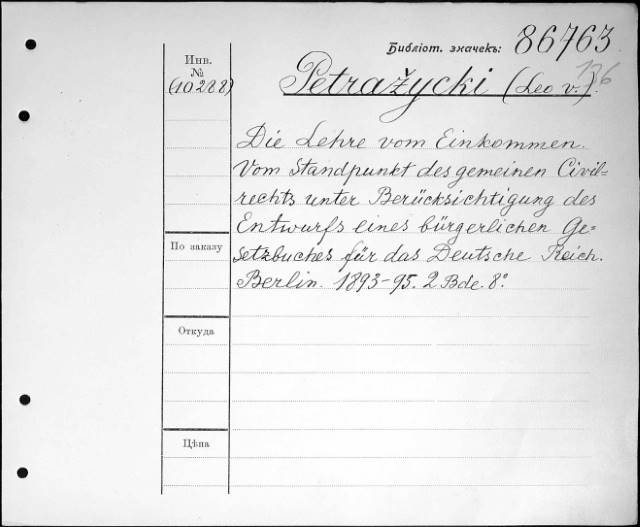 Библіот. значекъ: 86763
136
Инв.
№
(10288)
Petražycki (Leo v.).
Die Lehre vom Einkommen.
Vom Standpunkt des gemeinen Civil=
rechts unter Berücksichtigung des
Entwurfs eines bürgerlichen Ge=
setzbuches für das Deutsche Reich.
Berlin. 1893-95. 2 Bde. 8°.
По заказу
Откуда
Цѣна